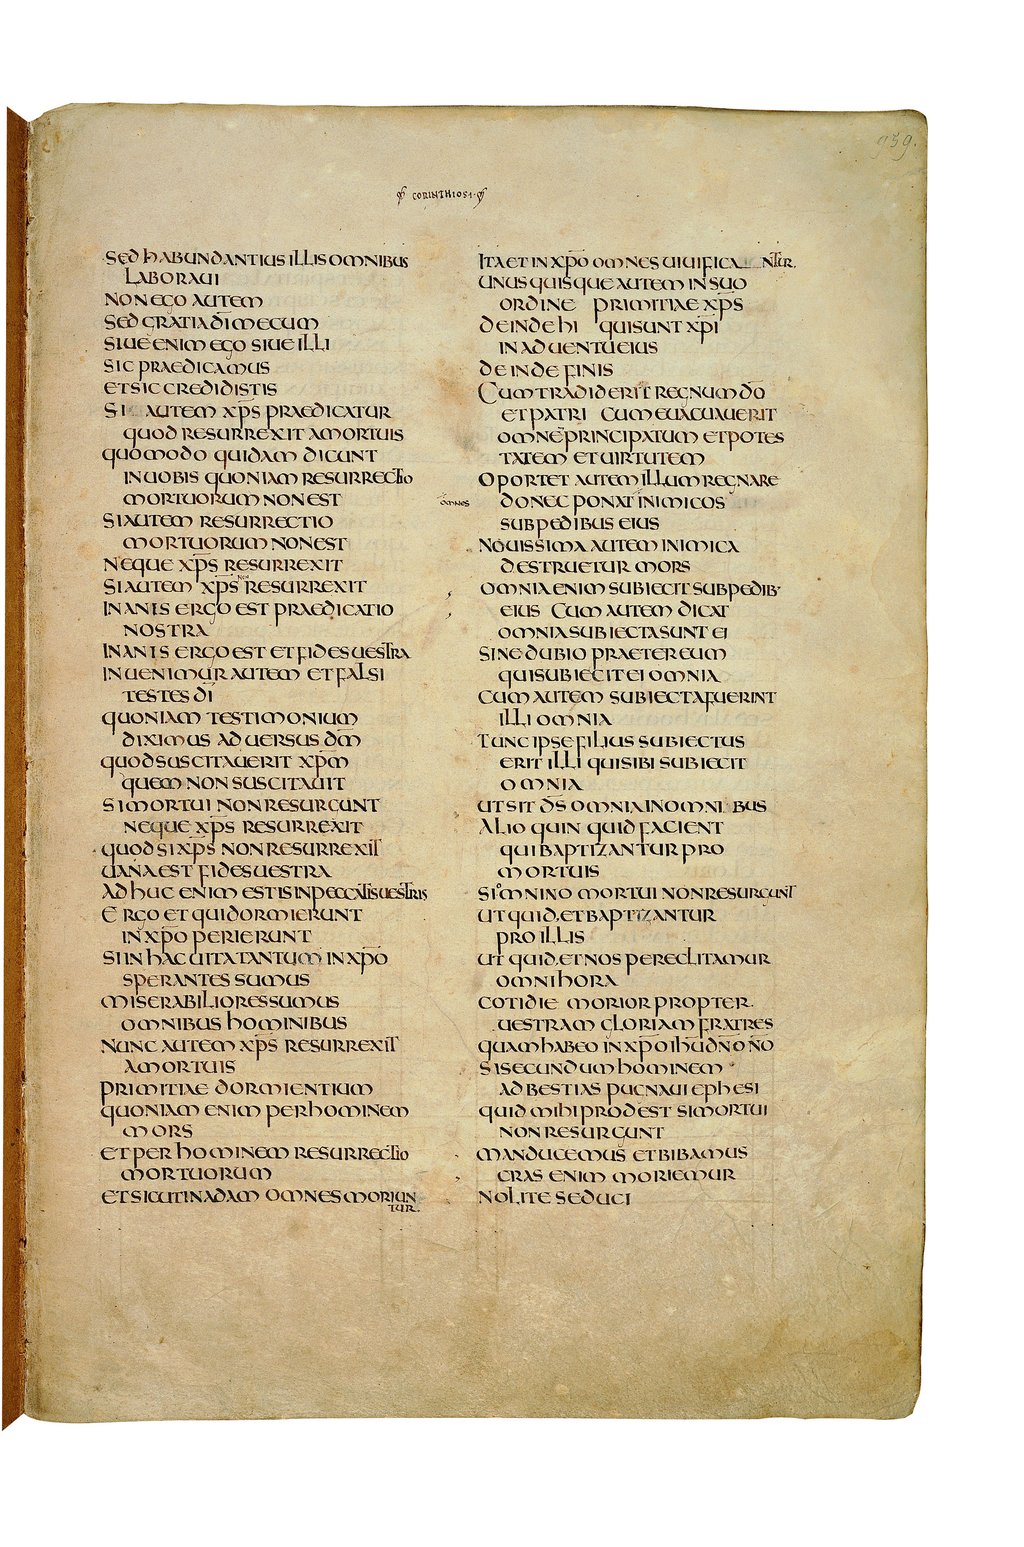 959.
CORINTHIOS·I·
SED HABUNDANTIUS ILLIS OMNIBUS
LABORAUI
NON EGO AUTEM
SED GRATIA DĪ MECUM
SIUE ENIM EGO SIUE ILLI
SIC PRAEDICAMUS
ET SIC CREDIDISTIS
SI AUTEM XP̄S PRAEDICATUR
QUOD RESURREXIT A MORTUIS
QUOMODO QUIDAM DICUNT
IN UOBIS QUONIAM RESURRECTIO
MORTUORUM NON EST
SI AUTEM RESURRECTIO
MORTUORUM NON EST
NEQUE XP̄S RESURREXIT
SI AUTEM XP̄S NON RESURREXIT
INANIS ERGO EST PRAEDICATIO
NOSTRA
INANIS ERGO EST ET FIDES UESTRA
INUENIMUR AUTEM ET FALSI
TESTES DĪ
QUONIAM TESTIMONIUM
DIXIMUS ADUERSUS DM̄
QUOD SUSCITAUERIT XPM̄
QUEM NON SUSCITAUIT
SI MORTUI NON RESURGUNT
NEQUE XP̄S RESURREXIT
QUOD SI XP̄S NON RESURREXIT
UANA EST FIDES UESTRA
ADHUC ENIM ESTIS IN PECCATIS UESTRIS
ERGO ET QUI DORMIERUNT
IN XP̄O PERIERUNT
SI IN HAC UITA TANTUM IN XP̄O
SPERANTES SUMUS
MISERABILIORES SUMUS
OMNIBUS HOMINIBUS
NUNC AUTEM XP̄S RESURREXIT
A MORTUIS
PRIMITIAE DORMIENTIUM
QUONIAM ENIM PER HOMINEM
MORS
ET PER HOMINEM RESURRECTIO
MORTUORUM
ET SICUT IN ADAM OMNES MORIUN
TUR.
ITA ET IN XP̄O OMNES UIUIFICA NTUR.
UNUSQUISQUE AUTEM IN SUO
ORDINE PRIMITIAE XP̄S
DEINDE HI QUI SUNT XP̄I
IN ADUENTU EIUS
DEINDE FINIS
CUM TRADIDERIT REGNUM DŌ
ET PATRI CUM EUACUAUERIT
OMNĒ PRINCIPATUM ET POTES
TATEM ET UIRTUTEM
OPORTET AUTEM ILLUM REGNARE
OMNES DONEC PONAT INIMICOS
SUB PEDIBUS EIUS
NOUISSIMA AUTEM INIMICA
DESTRUETUR MORS
OMNIA ENIM SUBIECIT SUB PEDIB·
EIUS CUM AUTEM DICAT
OMNIA SUBIECTA SUNT EI
SINE DUBIO PRAETER EUM
QUI SUBIECIT EI OMNIA
CUM AUTEM SUBIECTA FUERINT
ILLI OMNIA
TUNC IPSE FILIUS SUBIECTUS
ERIT ILLI QUI SIBI SUBIECIT
OMNIA
UT SIT D̄S OMNIA IN OMNIBUS
ALIOQUIN QUID FACIENT
QUI BAPTIZANTUR PRO
MORTUIS
SI OMNINO MORTUI NON RESURGUNT
UT QUID ET BAPTIZANTUR
PRO ILLIS
UT QUID ET NOS PERECLITAMUR
OMNI HORA
COTIDIE MORIOR PROPTER
UESTRAM GLORIAM FRATRES
QUAM HABEO IN XP̄O IHŪ DN̄O NŌ
SI SECUNDUM HOMINEM
AD BESTIAS PUGNAUI EPHESI
QUID MIHI PRODEST SI MORTUI
NON RESURGUNT
MANDUCEMUS ET BIBAMUS
CRAS ENIM MORIEMUR
NOLITE SEDUCI